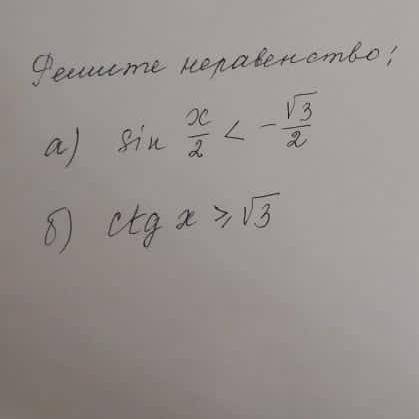 Решите неравенство:
а) sin x/2 < -√3/2
б) ctg x ≥ √3